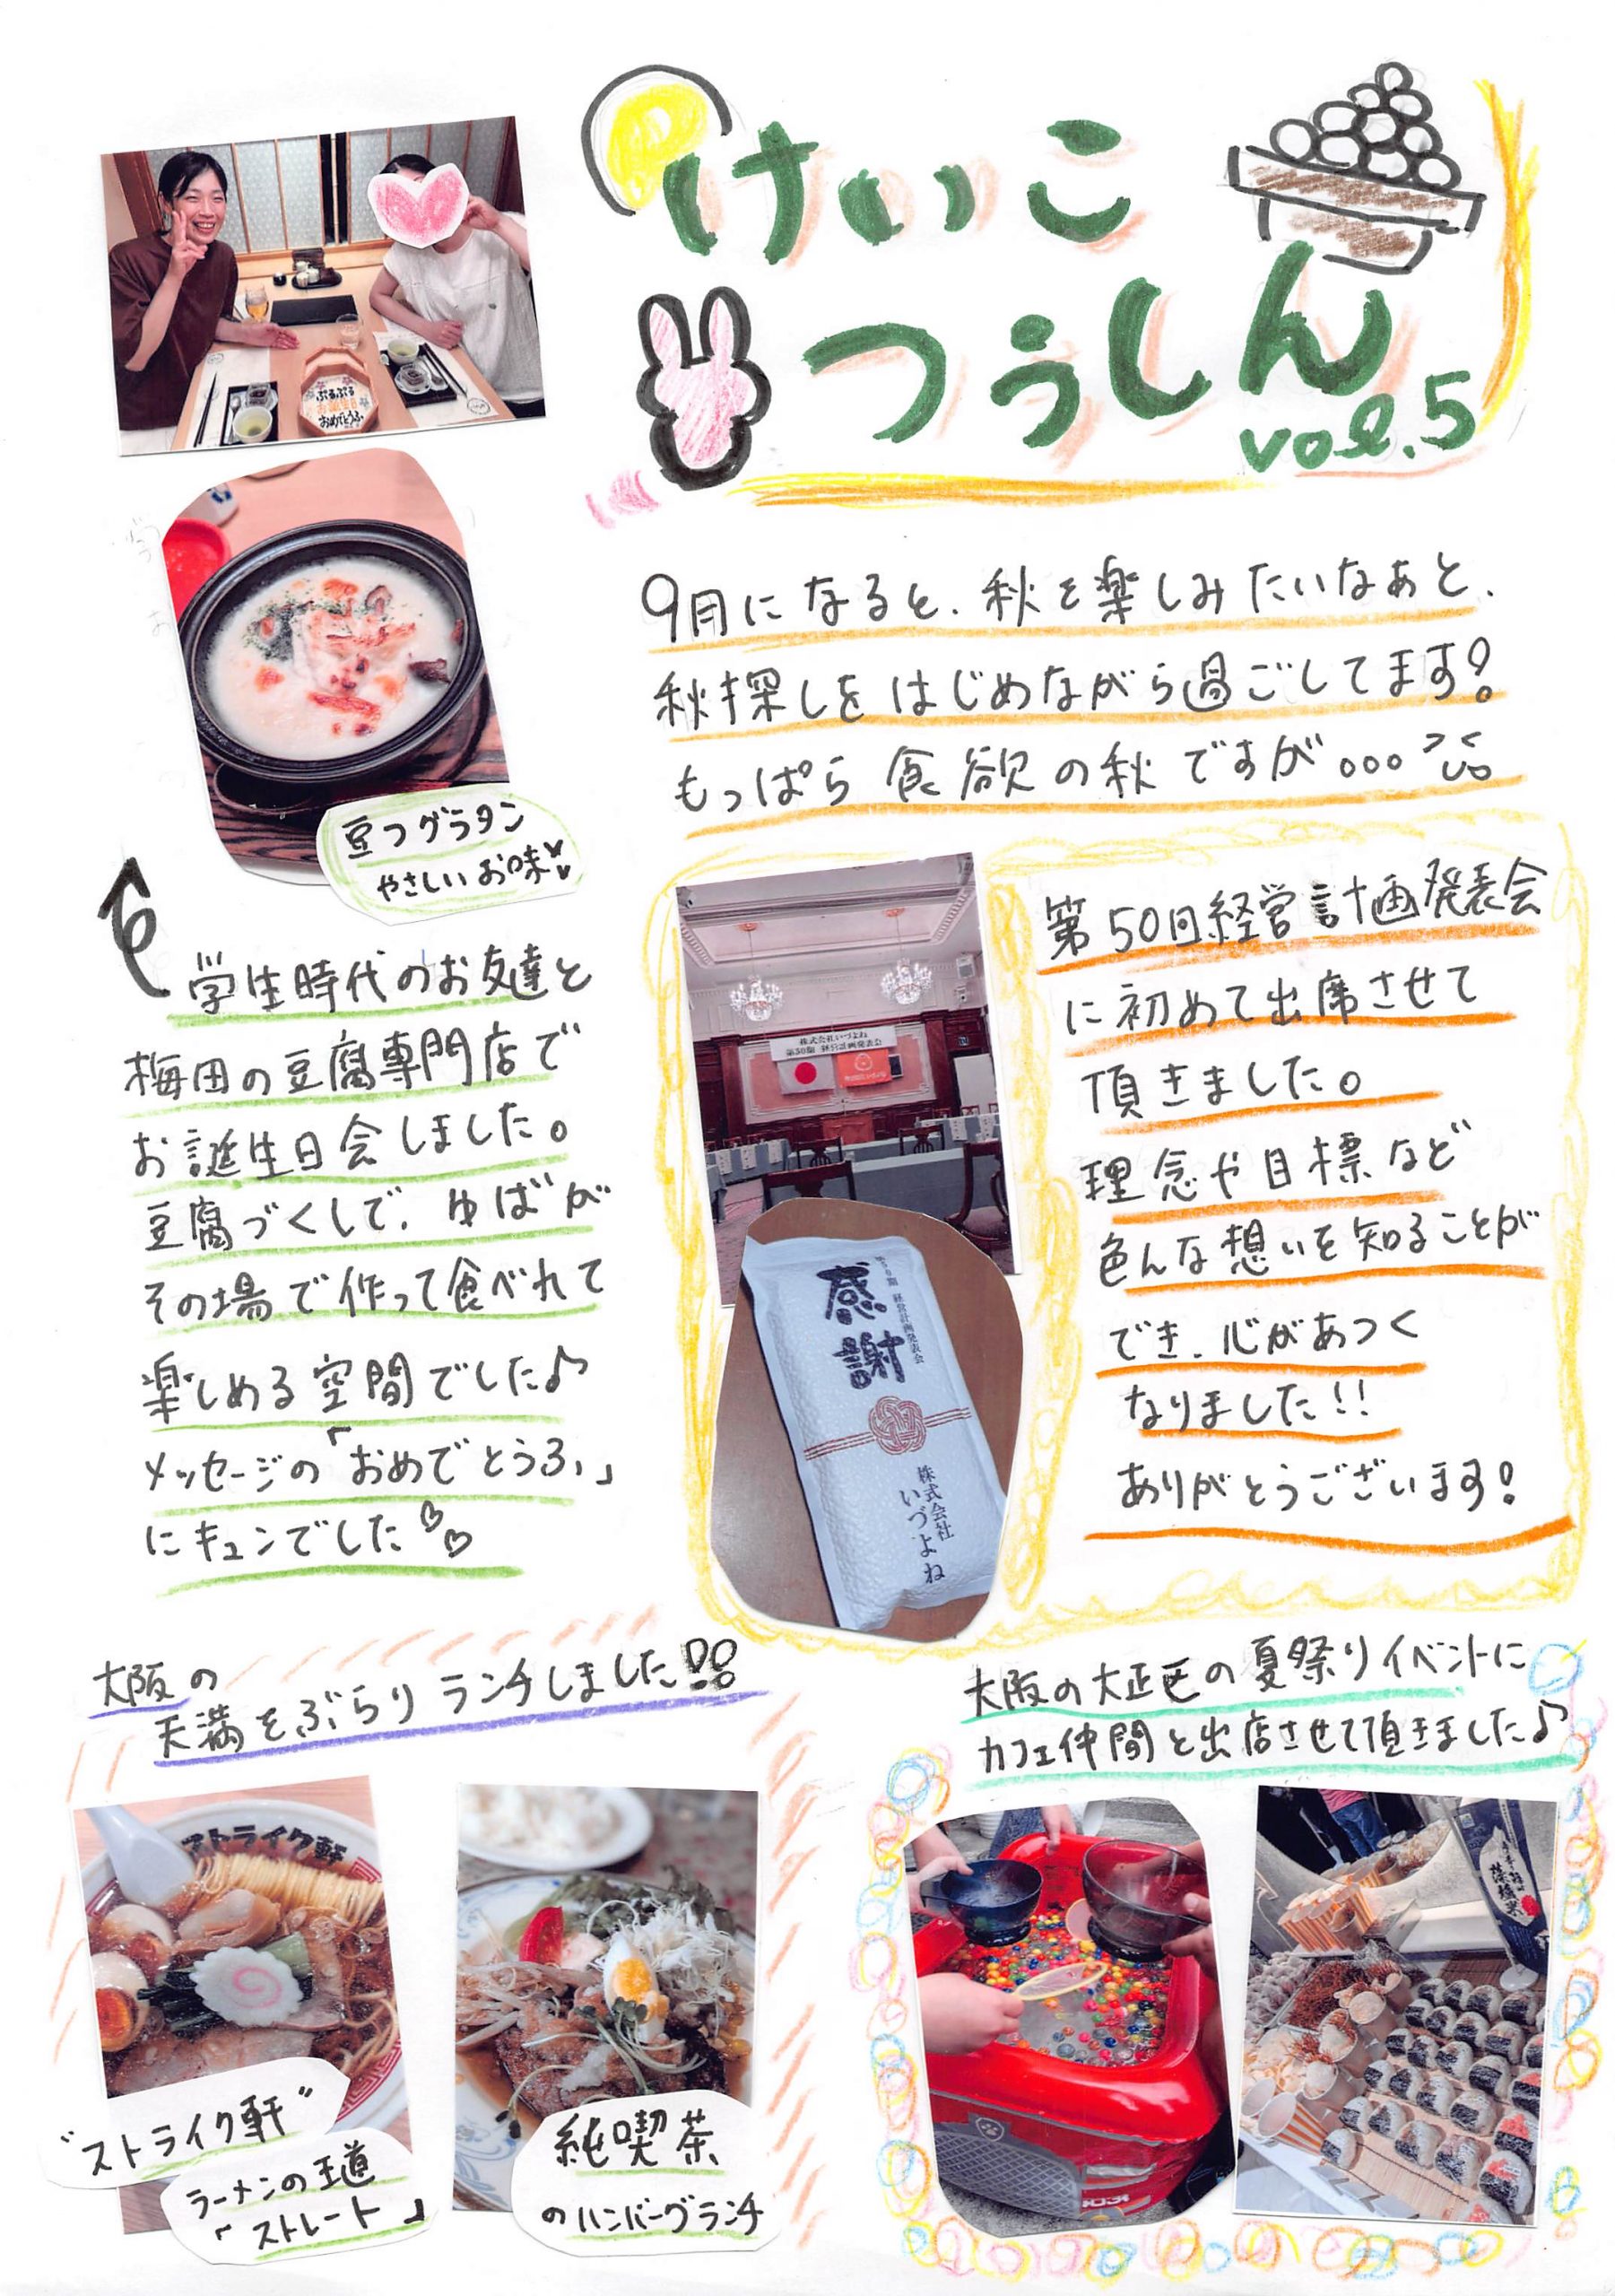 けいこ
つうしん
vol.5
ぷるぷる
お誕生日
おめでとうふ
9月になると、秋を楽しみたいなぁと、
秋探しをはじめながら過ごしてます!
もっぱら食欲の秋ですが...
豆つグラタン
やさしいお味
学生時代のお友達と
梅田の豆腐専門店で
お誕生日会しました。
豆腐づくしで、ゆばが
その場で作って食べれて
楽しめる空間でした♪
メッセージの「おめでとうふ」
にキュンでした♡♡
株式会社いづよね
第50期 経営計画発表会
第50期 経営計画発表会
感謝
株式会社
いづよね
第50回経営計画発表会
に初めて出席させて
頂きました。
理念や目標など
色んな想いを知ることが
でき、心があつく
なりました!!
ありがとうございます!
大阪の
天満をぶらりランチしました!!
ストライク軒
"ストライク軒"
ラーメンの王道
「ストレート」
純喫茶
のハンバーグランチ
大阪の大正区の夏祭りイベントに
カフェ仲間と出店させて頂きました♪